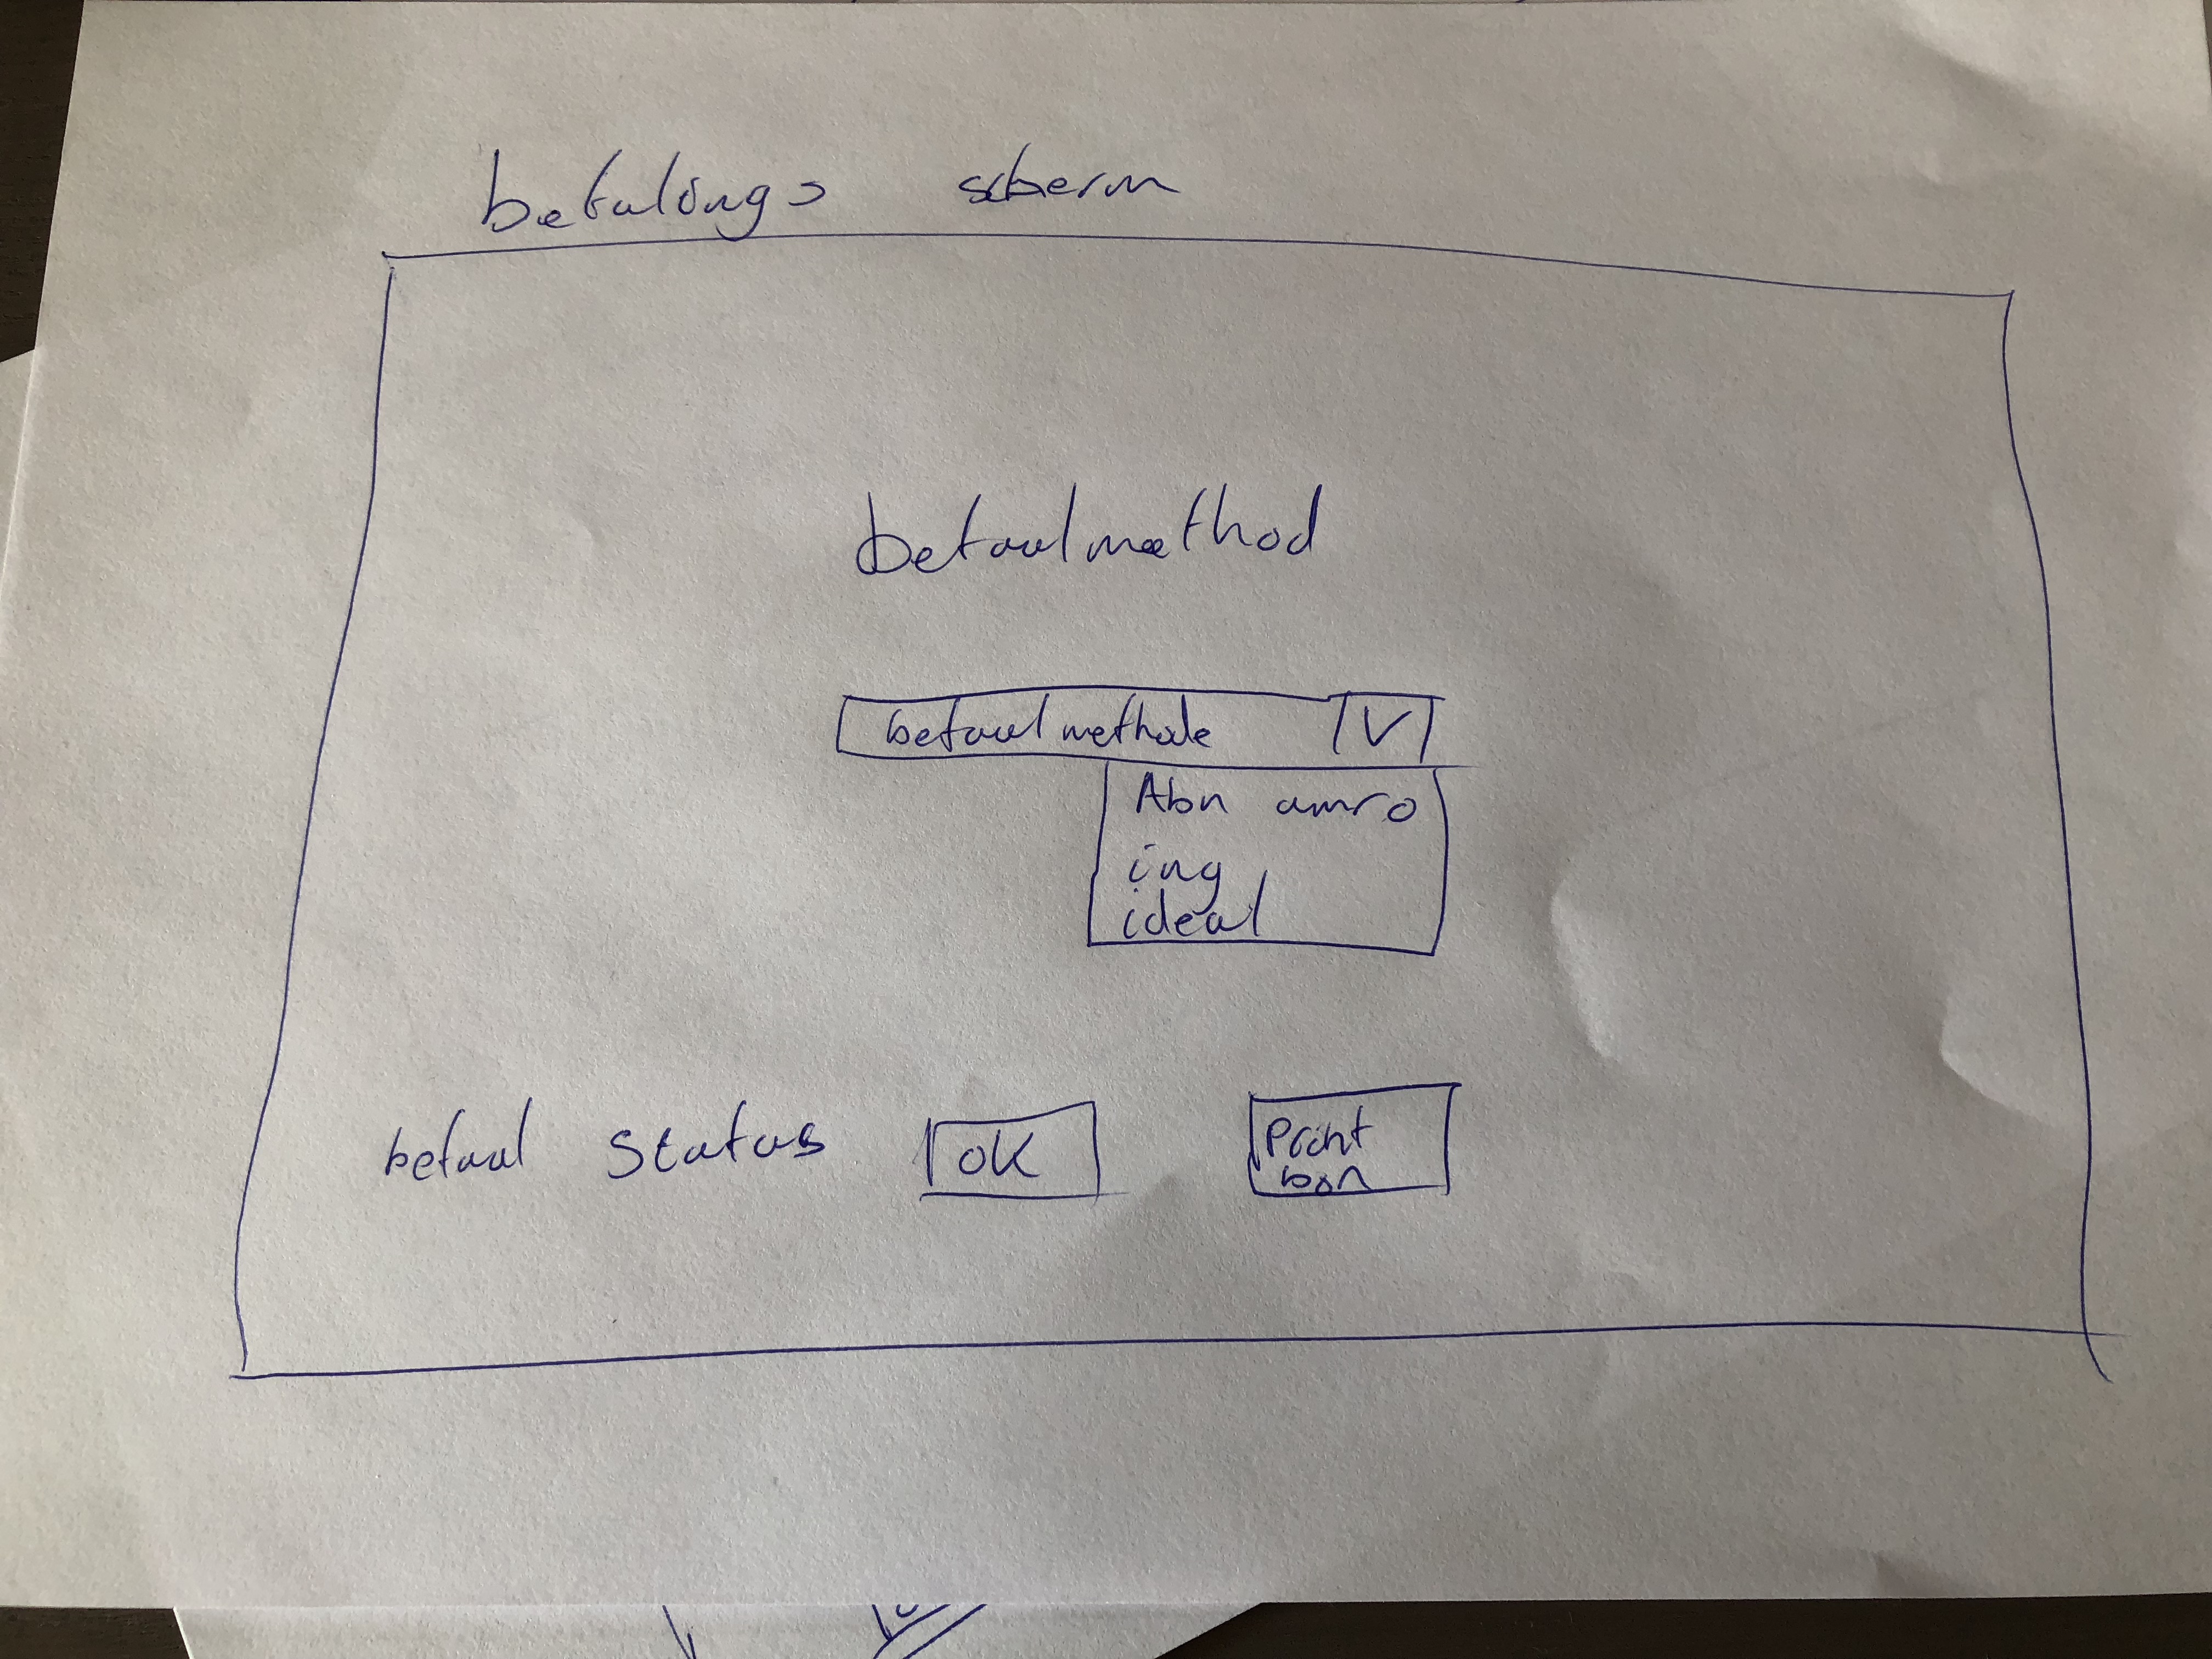 betalings scherm
betaalmethod
betaalmethode V
Abn amro
ing
ideal
betaal status
OK
Print
bon